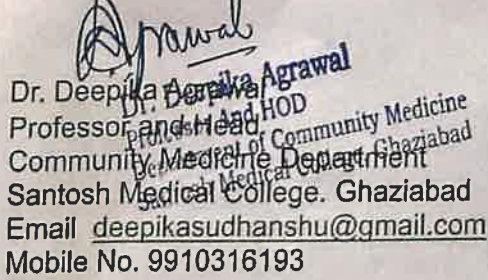 Agrawal
Dr. Deepika Agrawal
Professor and Head
Community Medicine Department
Santosh Medical College. Ghaziabad
Email deepikasudhanshu@gmail.com
Mobile No. 9910316193
Dr. Deepika Agrawal
Professor And HOD
Department of Community Medicine
Santosh Medical College, Ghaziabad